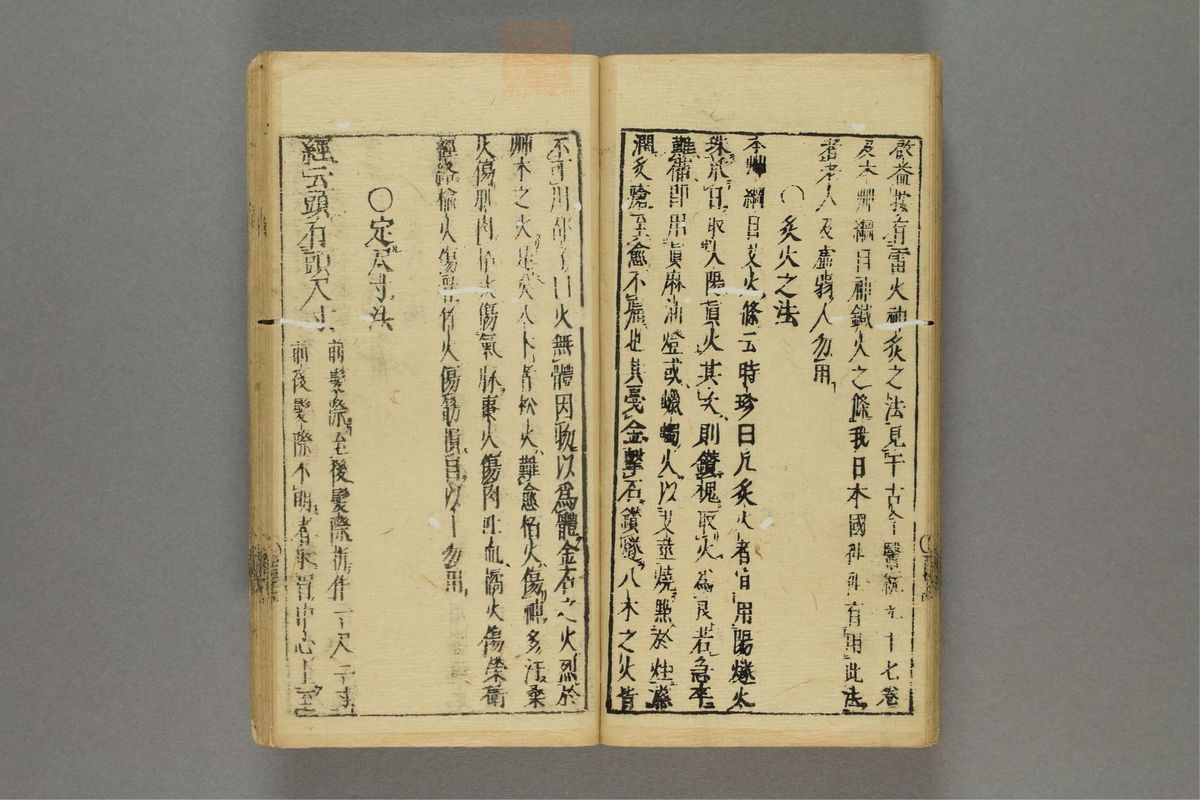 啟益按有雷火神灸之法見于古今醫統九十七卷
及本艸綱目神鍼火之條我日本國俗有用此法
者老人及虛弱人勿用
〇灸火之法
本艸綱目艾火條云時珍曰凡灸火者宜用陽燧火
珠承日取太陽真火其次則鑽槐取火為良若急卒
難備即用真麻油燈或蠟燭火以艾莖燒點於炷滋
潤灸瘡至愈不痛也其戛金擊石鑽燧八木之火皆
不可用邵子曰火無體因物以為體金石之火烈於
艸木之火是矣八木者松火難愈柏火傷神多汗桑
火傷肌肉柘火傷氣脉棗火傷肉吐血橘火傷榮衛
經絡榆火傷骨竹火傷筋損目以上勿用
〇定尺寸法
經云頭有頭尺寸
前髮際至後髮際折作一尺二寸
前後髮際不明者取眉中心上至